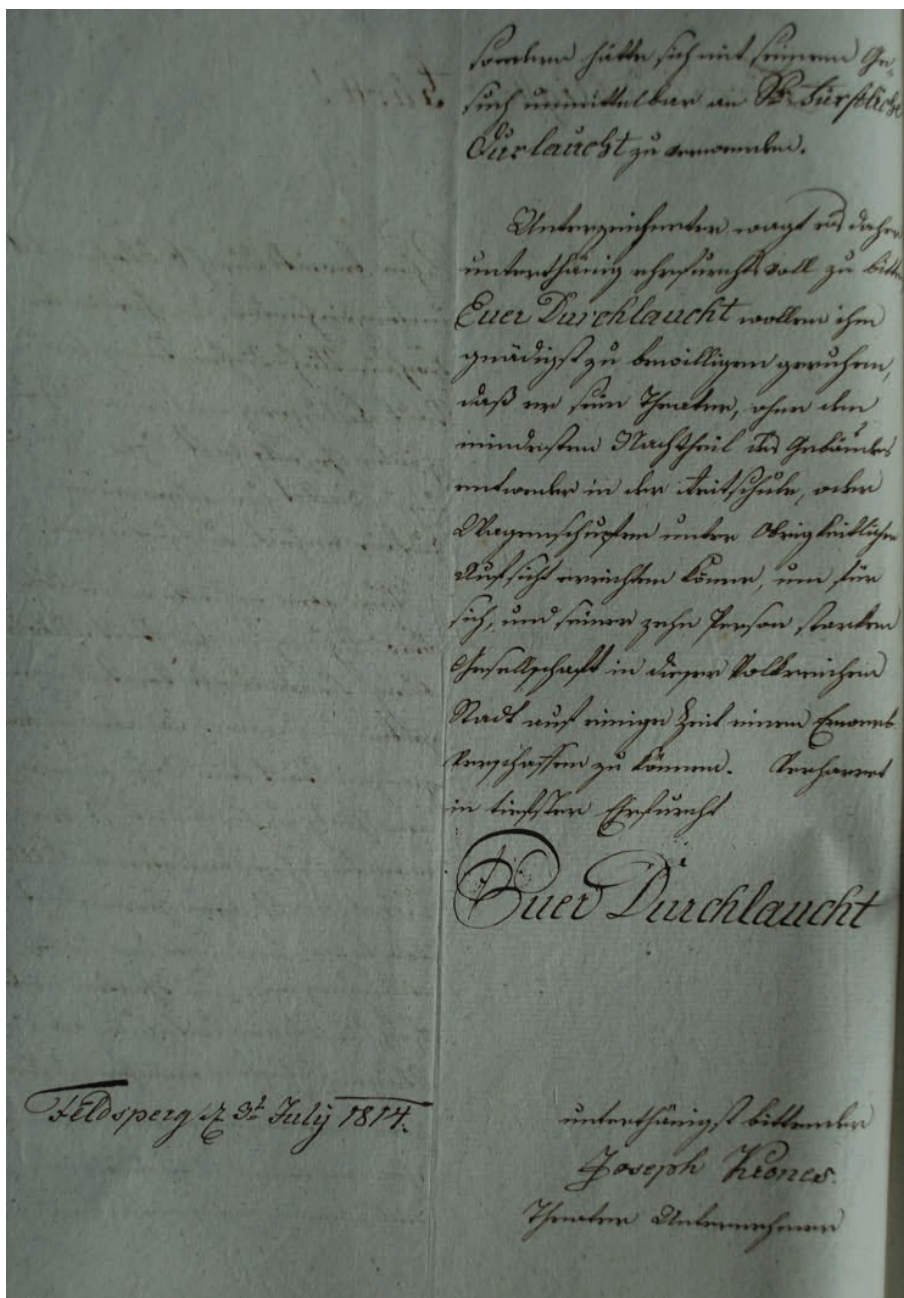 sondern hätte sich mit seinem Ge-
such unmittelbar an Se Fürstliche
Durlaucht zu verwenden.
Unterzeichneter wagt es daher
unterthänig ehrfurchtsvoll zu bitten
Euer Durchlaucht wollen ihm
gnädigst zu bewilligen geruhen,
daß er sein Theater, ohne den
mindesten Nachtheil des Gebäudes
entweder in der Reitschule, oder
Wagenschupfen unter Obrigkeitlicher
Aufsicht errichten könne, um für
sich, und seiner zehn Person starken
Gesellschaft in dieser Volkreichen
Stadt auf einige Zeit einen Erwerb
verschaffen zu können. Verharret
in tiefster Ehrfurcht
Euer Durchlaucht
Feldsperg d. 3t July 1814.
unterthänigst bittender
Joseph Krones.
Theater Unternehmer